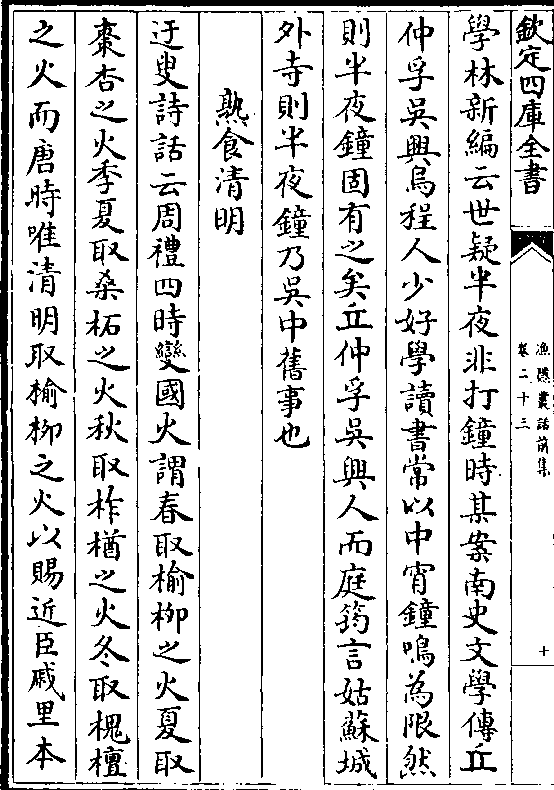 欽定四庫全書
漁隱叢話前集
卷二十三
十
學林新編云世疑半夜非打鐘時某案南史文學傳丘
仲孚吳興烏程人少好學讀書常以中宵鐘鳴為限然
則半夜鐘固有之矣丘仲孚吳興人而庭筠言姑蘇城
外寺則半夜鐘乃吳中舊事也
熟食清明
迂叟詩話云周禮四時變國火謂春取榆柳之火夏取
棗杏之火季夏取桑柘之火秋取柞楢之火冬取槐檀
之火而唐時唯清明取榆柳之火以賜近臣戚里本